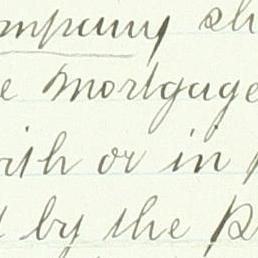 mpany sh
e mortgage
ith or in
by the